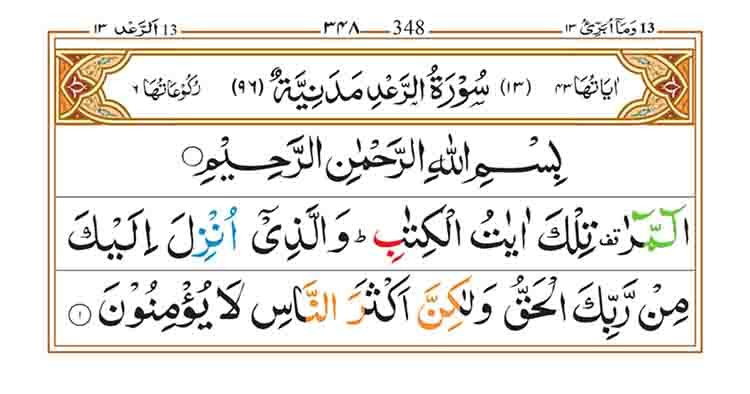 وَمَآ اُبَرِّئُ ١٣ 13 ٣٤٨ 348 اَلرَّعْد ١٣ 13
اٰيَاتُهَا ٤٣ (١٣) سُوْرَةُ الرَّعْدِ مَدَنِيَّةٌ (٩٦) رُكُوْعَاتُهَا ٦
بِسْمِ اللّٰهِ الرَّحْمٰنِ الرَّحِيْمِ
الٓمّٓرٰ تف تِلْكَ اٰيٰتُ الْكِتٰبِ ؕ وَالَّذِىْۤ اُنْزِلَ اِلَيْكَ
مِنْ رَّبِّكَ الْحَقُّ وَلٰكِنَّ اَكْثَرَ النَّاسِ لَا يُؤْمِنُوْنَ ١